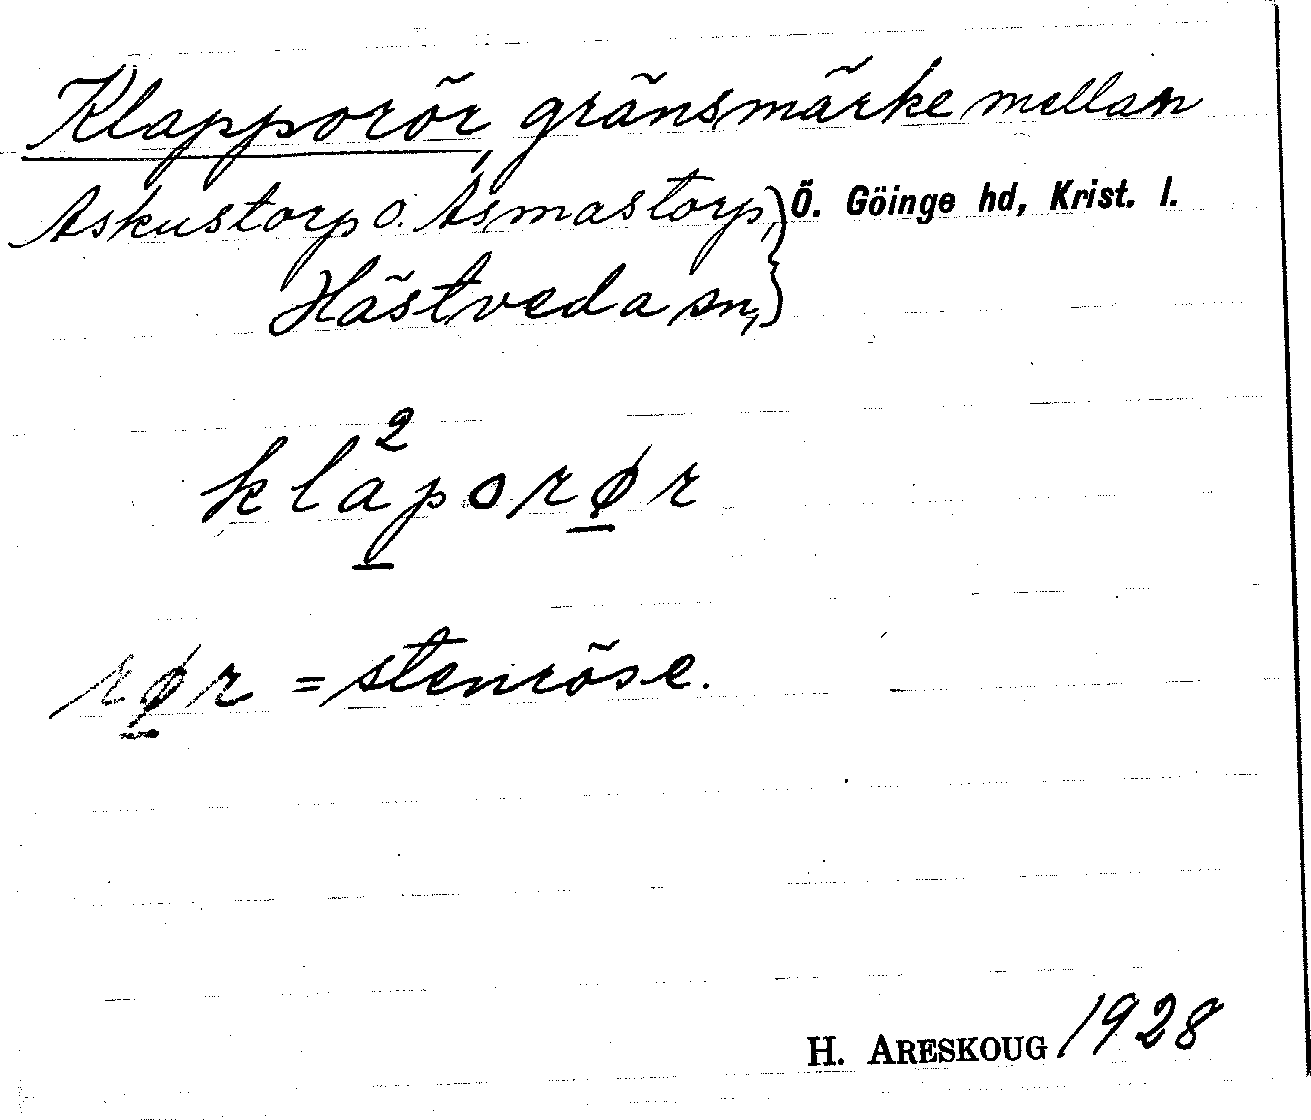 Klapporör, gränsmärke mellan
Askustorp o. Åsmastorp, } Ö. Göinge hd, Krist. l.
Hästveda sn,
kla²porør
rør = stenröse.
H. ARESKOUG 1928